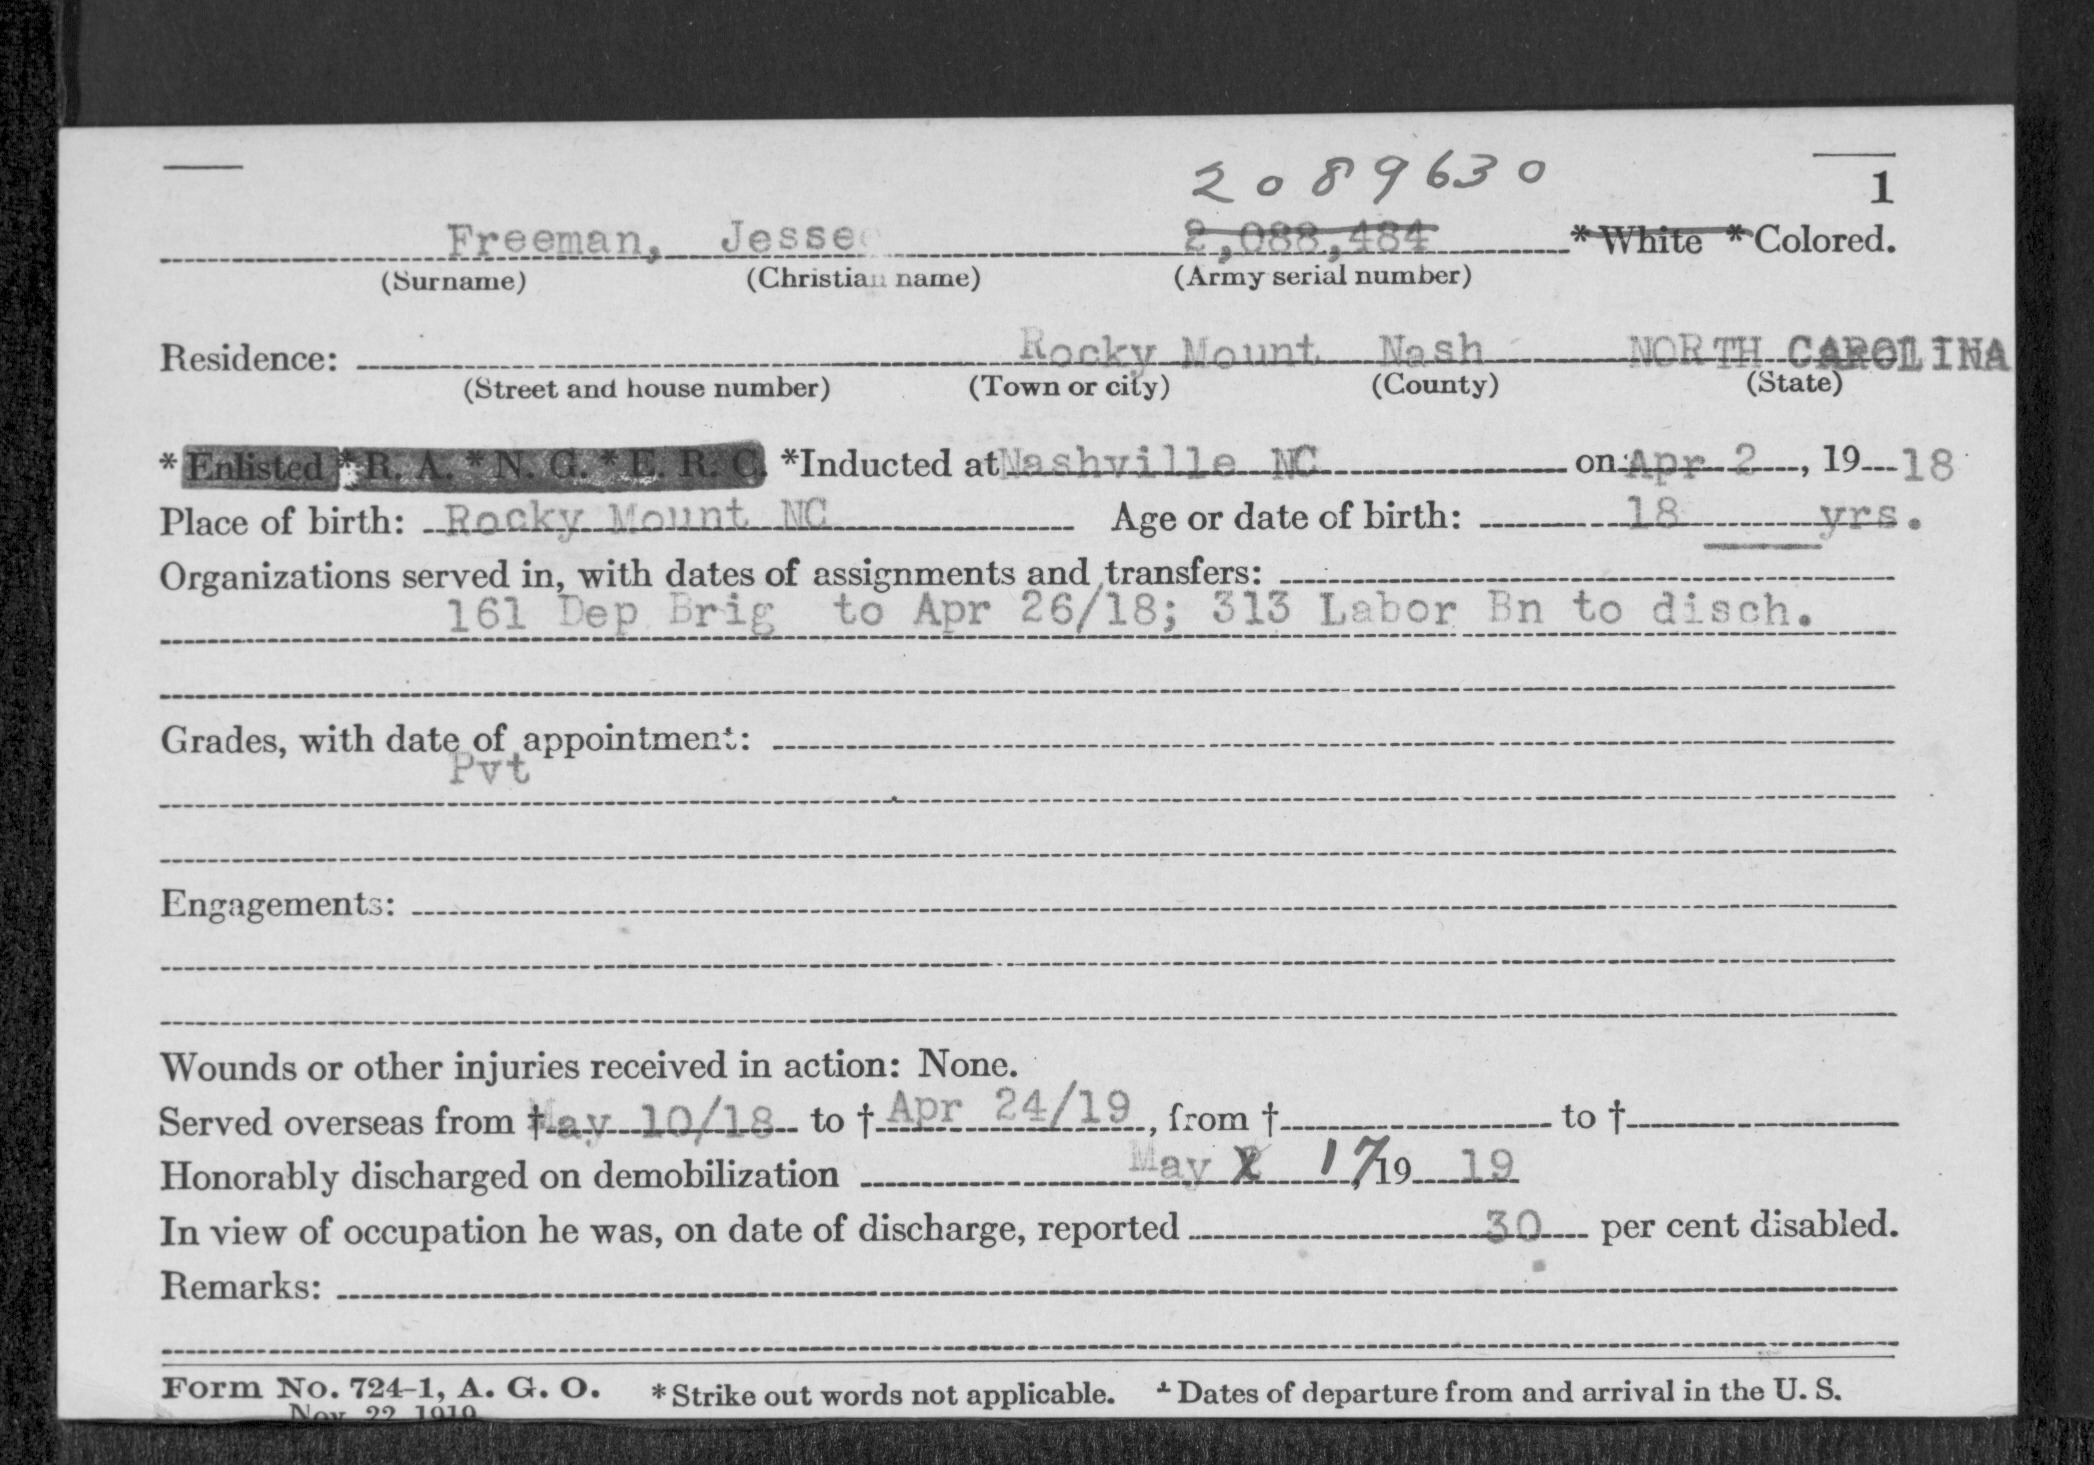 2089630
1
Freeman, Jesse 2,088,484 * White * Colored.
(Surname) (Christian name) (Army serial number)
Rocky Mount Nash NORTH CAROLINA
Residence:
(Street and house number) (Town or city) (County) (State)
* Enlisted * R. A. * N. G. * E. R. C. *Inducted at Nashville NC on Apr 2, 19 18
Place of birth: Rocky Mount NC Age or date of birth: 18 yrs.
Organizations served in, with dates of assignments and transfers:
161 Dep Brig to Apr 26/18; 313 Labor Bn to disch.
Grades, with date of appointment:
Pvt
Engagements:
Wounds or other injuries received in action: None.
Served overseas from † May 10/18 to † Apr 24/19, from † to †
Honorably discharged on demobilization May 17, 19 19
In view of occupation he was, on date of discharge, reported 30 per cent disabled.
Remarks:
Form No. 724-1, A. G. O. * Strike out words not applicable. † Dates of departure from and arrival in the U. S.
Nov. 22, 1919